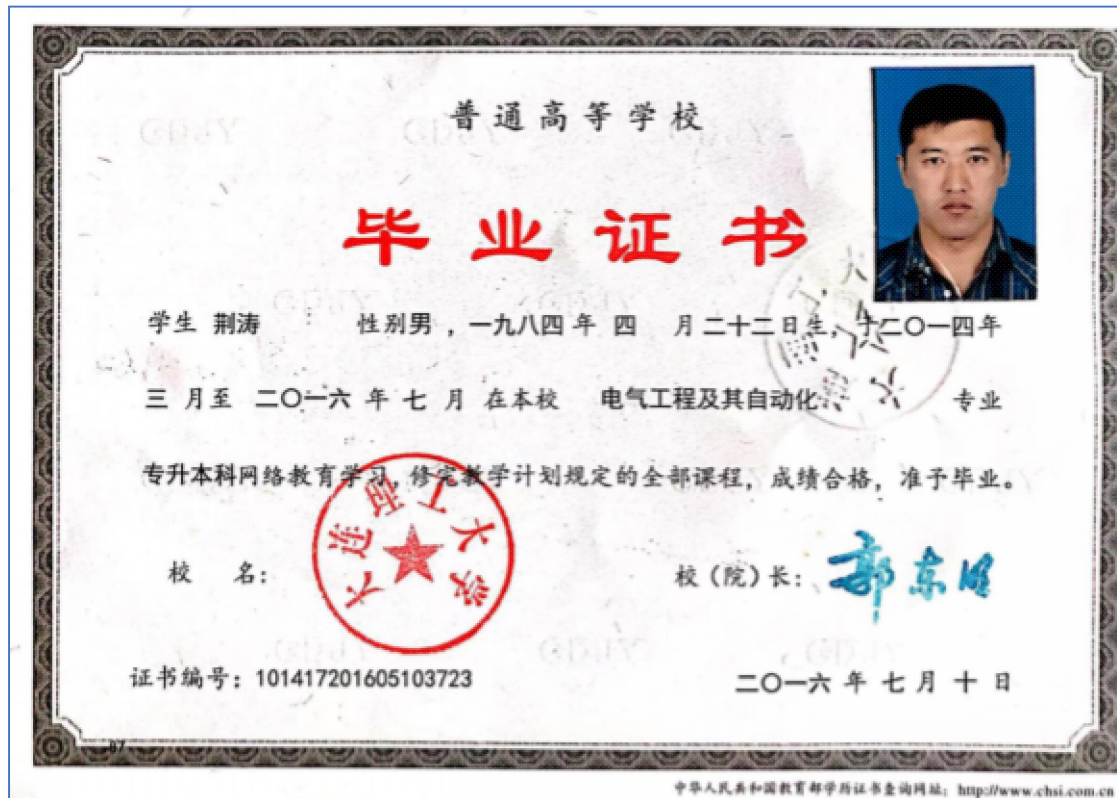 普通高等学校
毕业证书
学生 荆涛 性别男，一九八四年 四 月二十二日生，于二〇一四年
三 月至 二〇一六 年 七 月 在本校 电气工程及其自动化 专业
专升本科网络教育学习，修完教学计划规定的全部课程，成绩合格，准予毕业。
大连理工大学
校 名：
校（院）长：郭东明
证书编号：101417201605103723
二〇一六 年 七 月 十 日
中华人民共和国教育部学历证书查询网址：http://www.chsi.com.cn